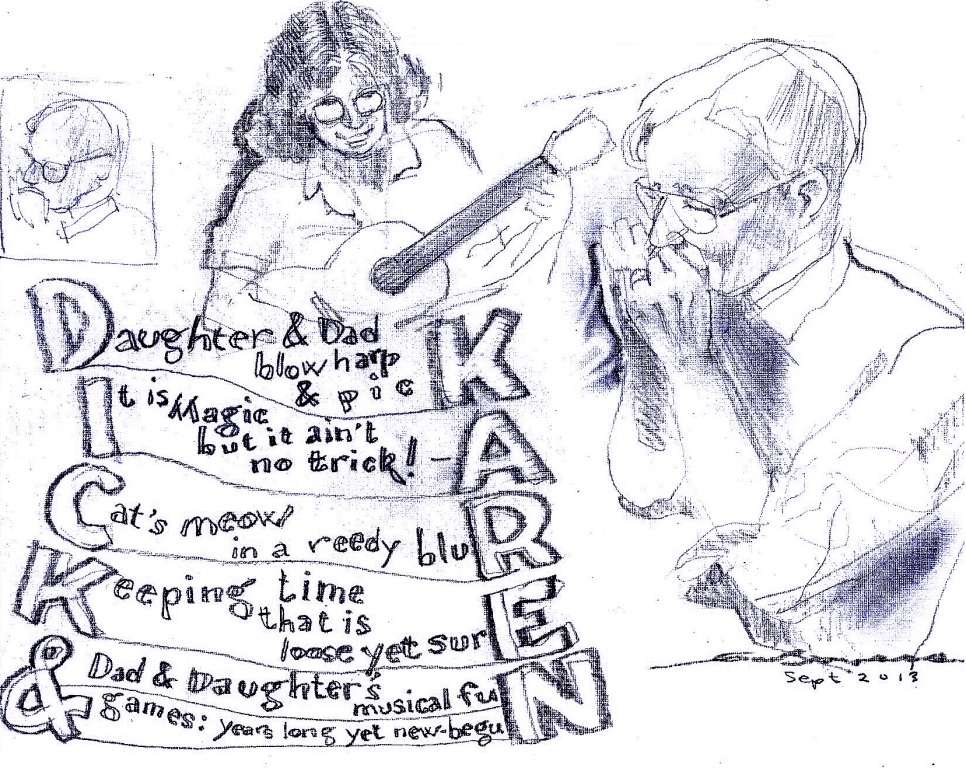 Daughter & Dad
blow harp
& picK
It is Magic
but it ain't
no trick! – A
Cat's meow
in a reedy bluR
Keeping time
that is
loose yet surE
& Dad & Daughter's
musical fuN
games: years long yet new-beguN
Sept 2013